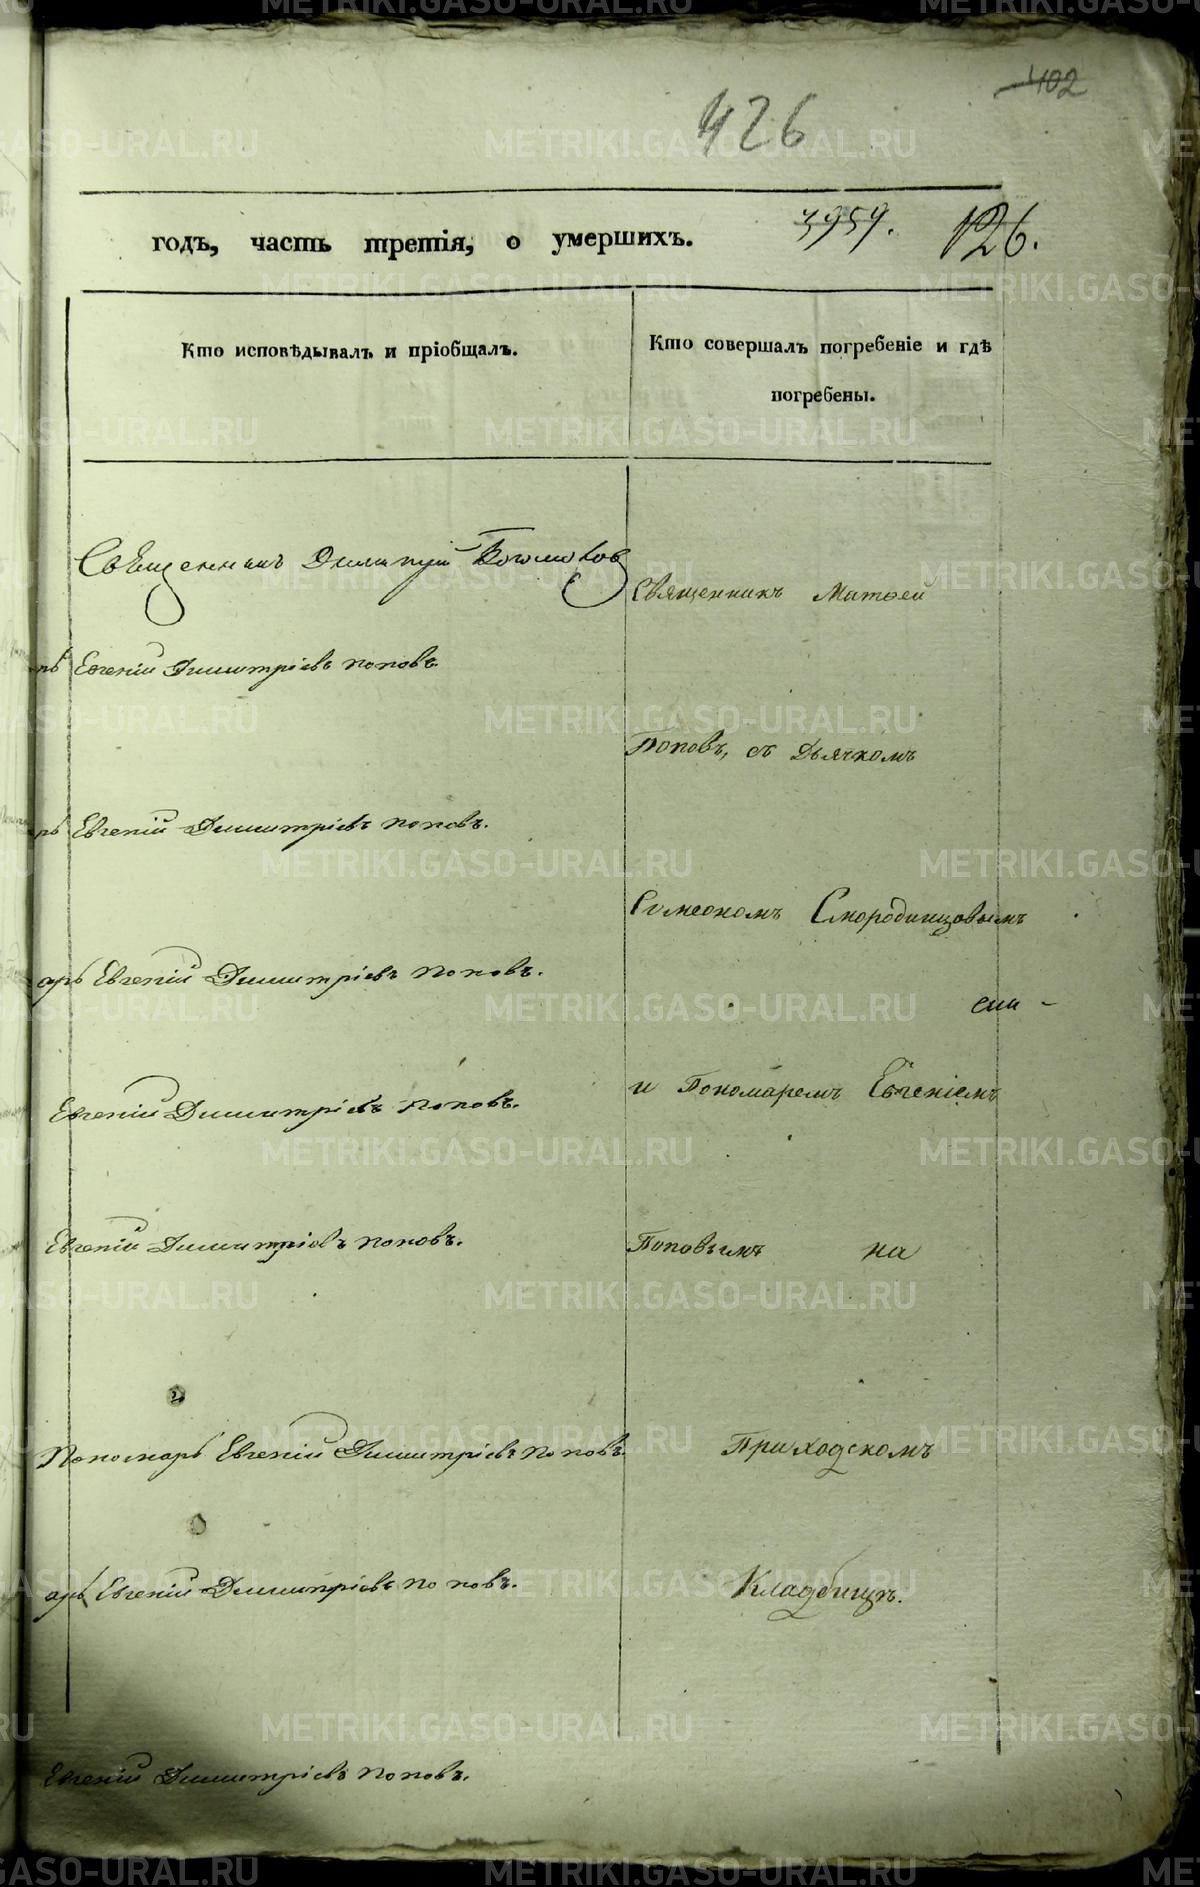 402
426
годъ, часть третія, о умершихъ.
3959.
126.
Кто исповѣдывалъ и пріобщалъ.
Кто совершалъ погребеніе и гдѣ
погребены.
Священникъ Димитрій
рь Евгеній Димитріевъ Поповъ.
рь Евгеній Димитріевъ Поповъ.
арь Евгеній Димитріевъ Поповъ.
Евгеній Димитріевъ Поповъ.
Евгеній Димитріевъ Поповъ.
Пономарь Евгеній Димитріевъ Поповъ.
арь Евгеній Димитріевъ Поповъ.
Евгеній Димитріевъ Поповъ.
Священникъ Матѳей
Поповъ, съ Дьячкомъ
Симеономъ Смородинцовымъ
и Пономаремъ Евгеніемъ
Поповымъ на
Приходскомъ
Кладбищѣ.
METRIKI.GASO-URAL.RU